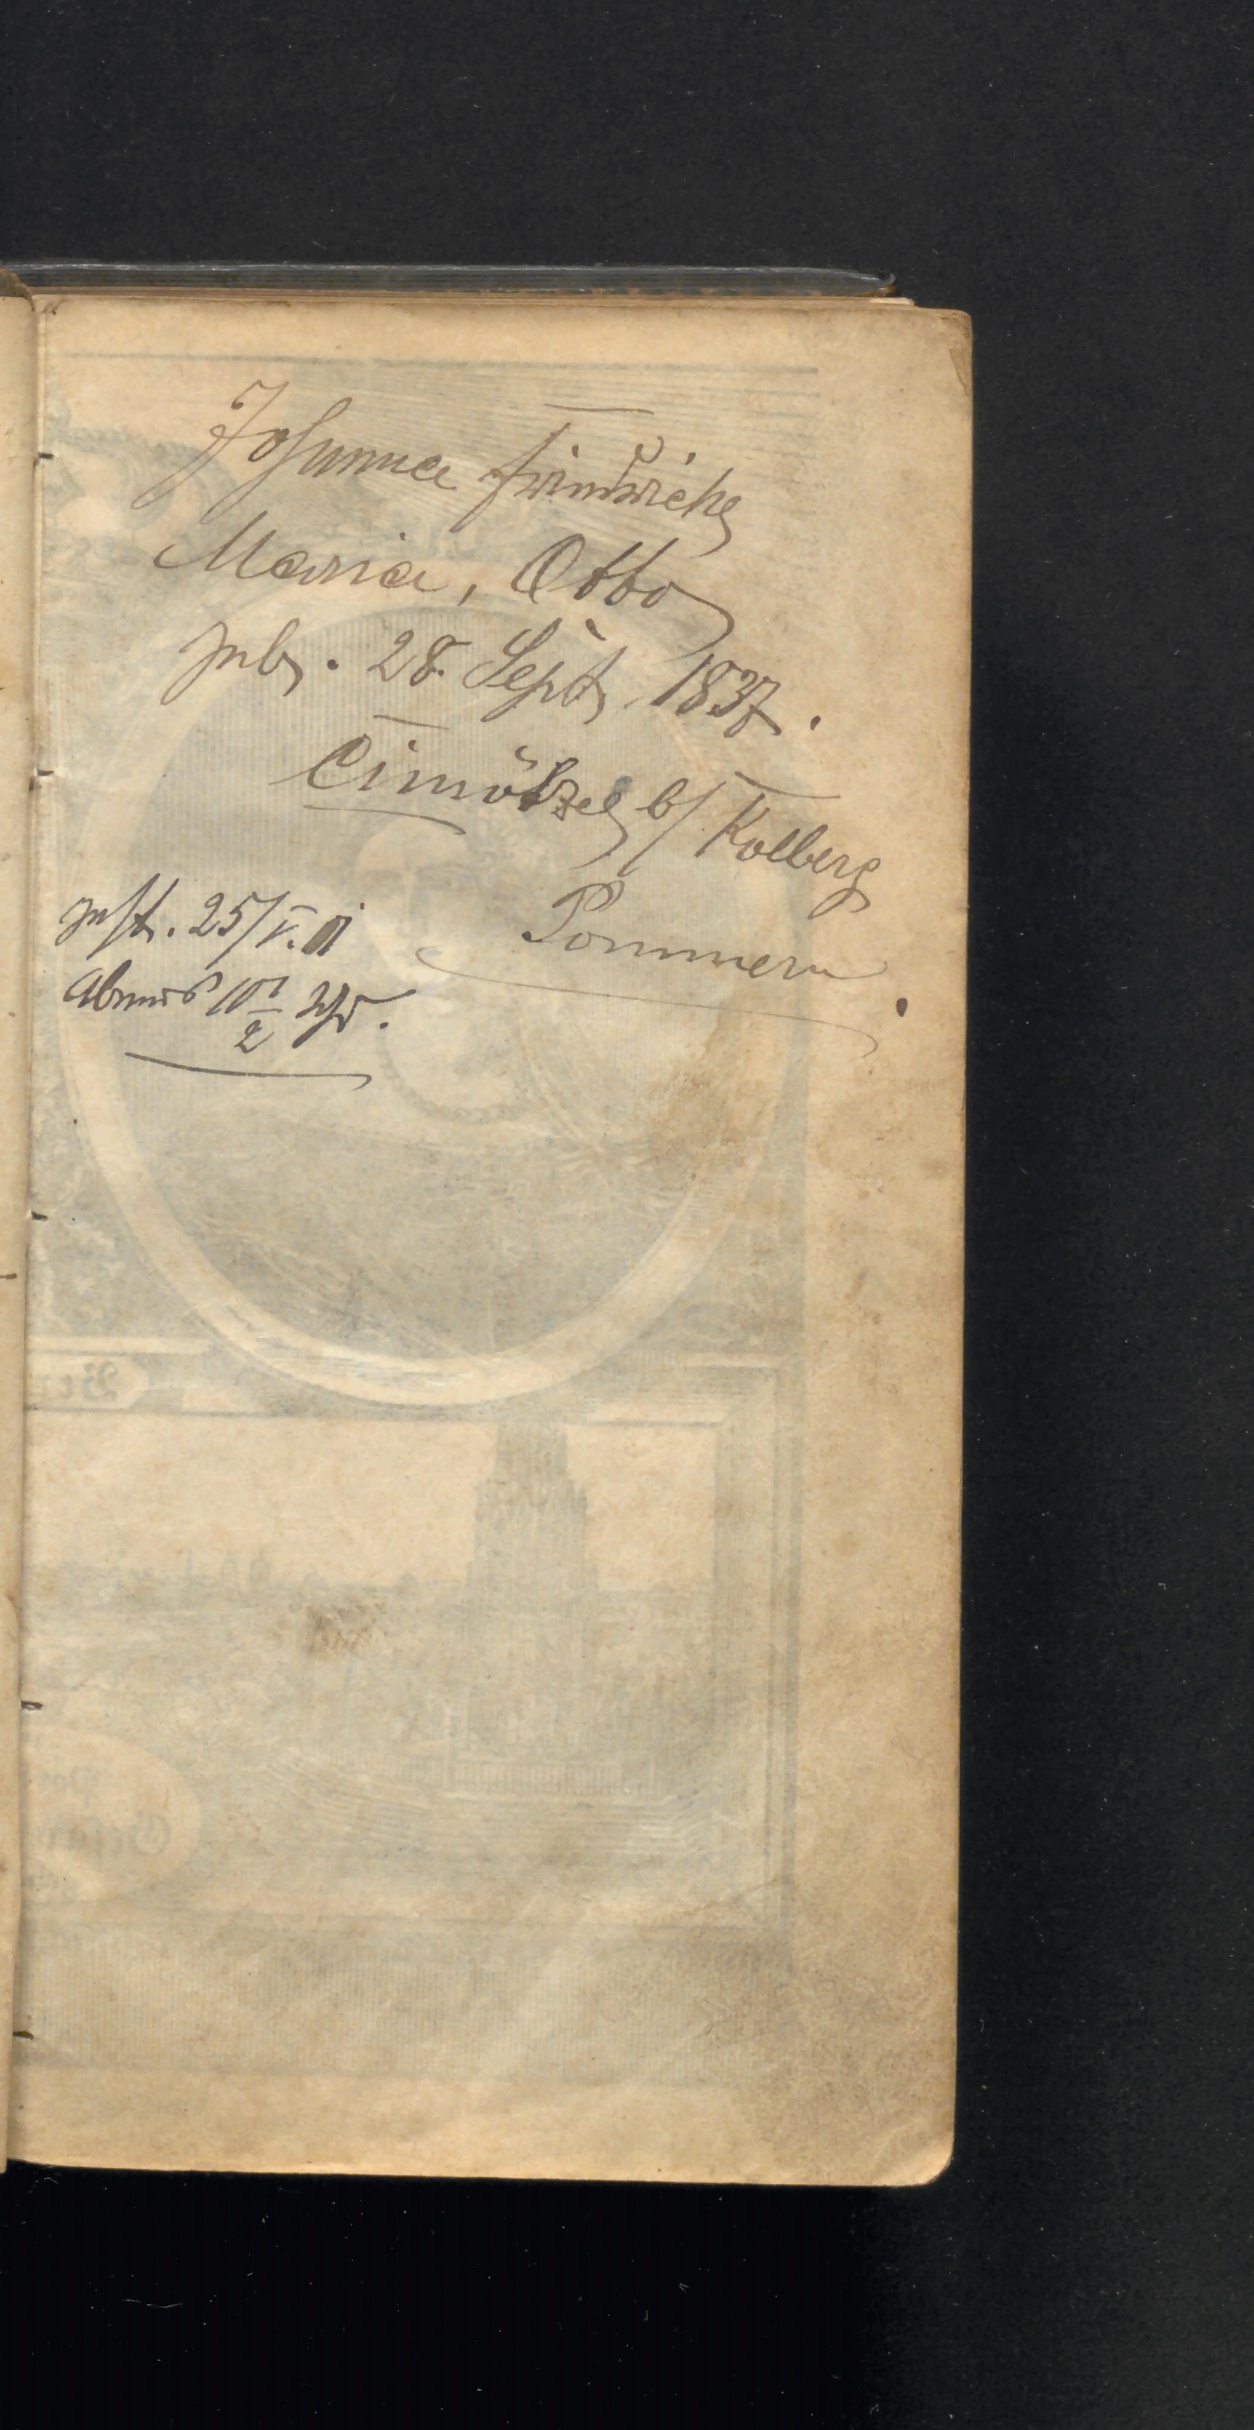 Johanna Friedricke
Maria, Otto
geb. 28. Sept. 1837.
Cimötzel b/ Kolberg
Pommern
gest. 25/V. 01
Abends 10 1/2 Uhr.